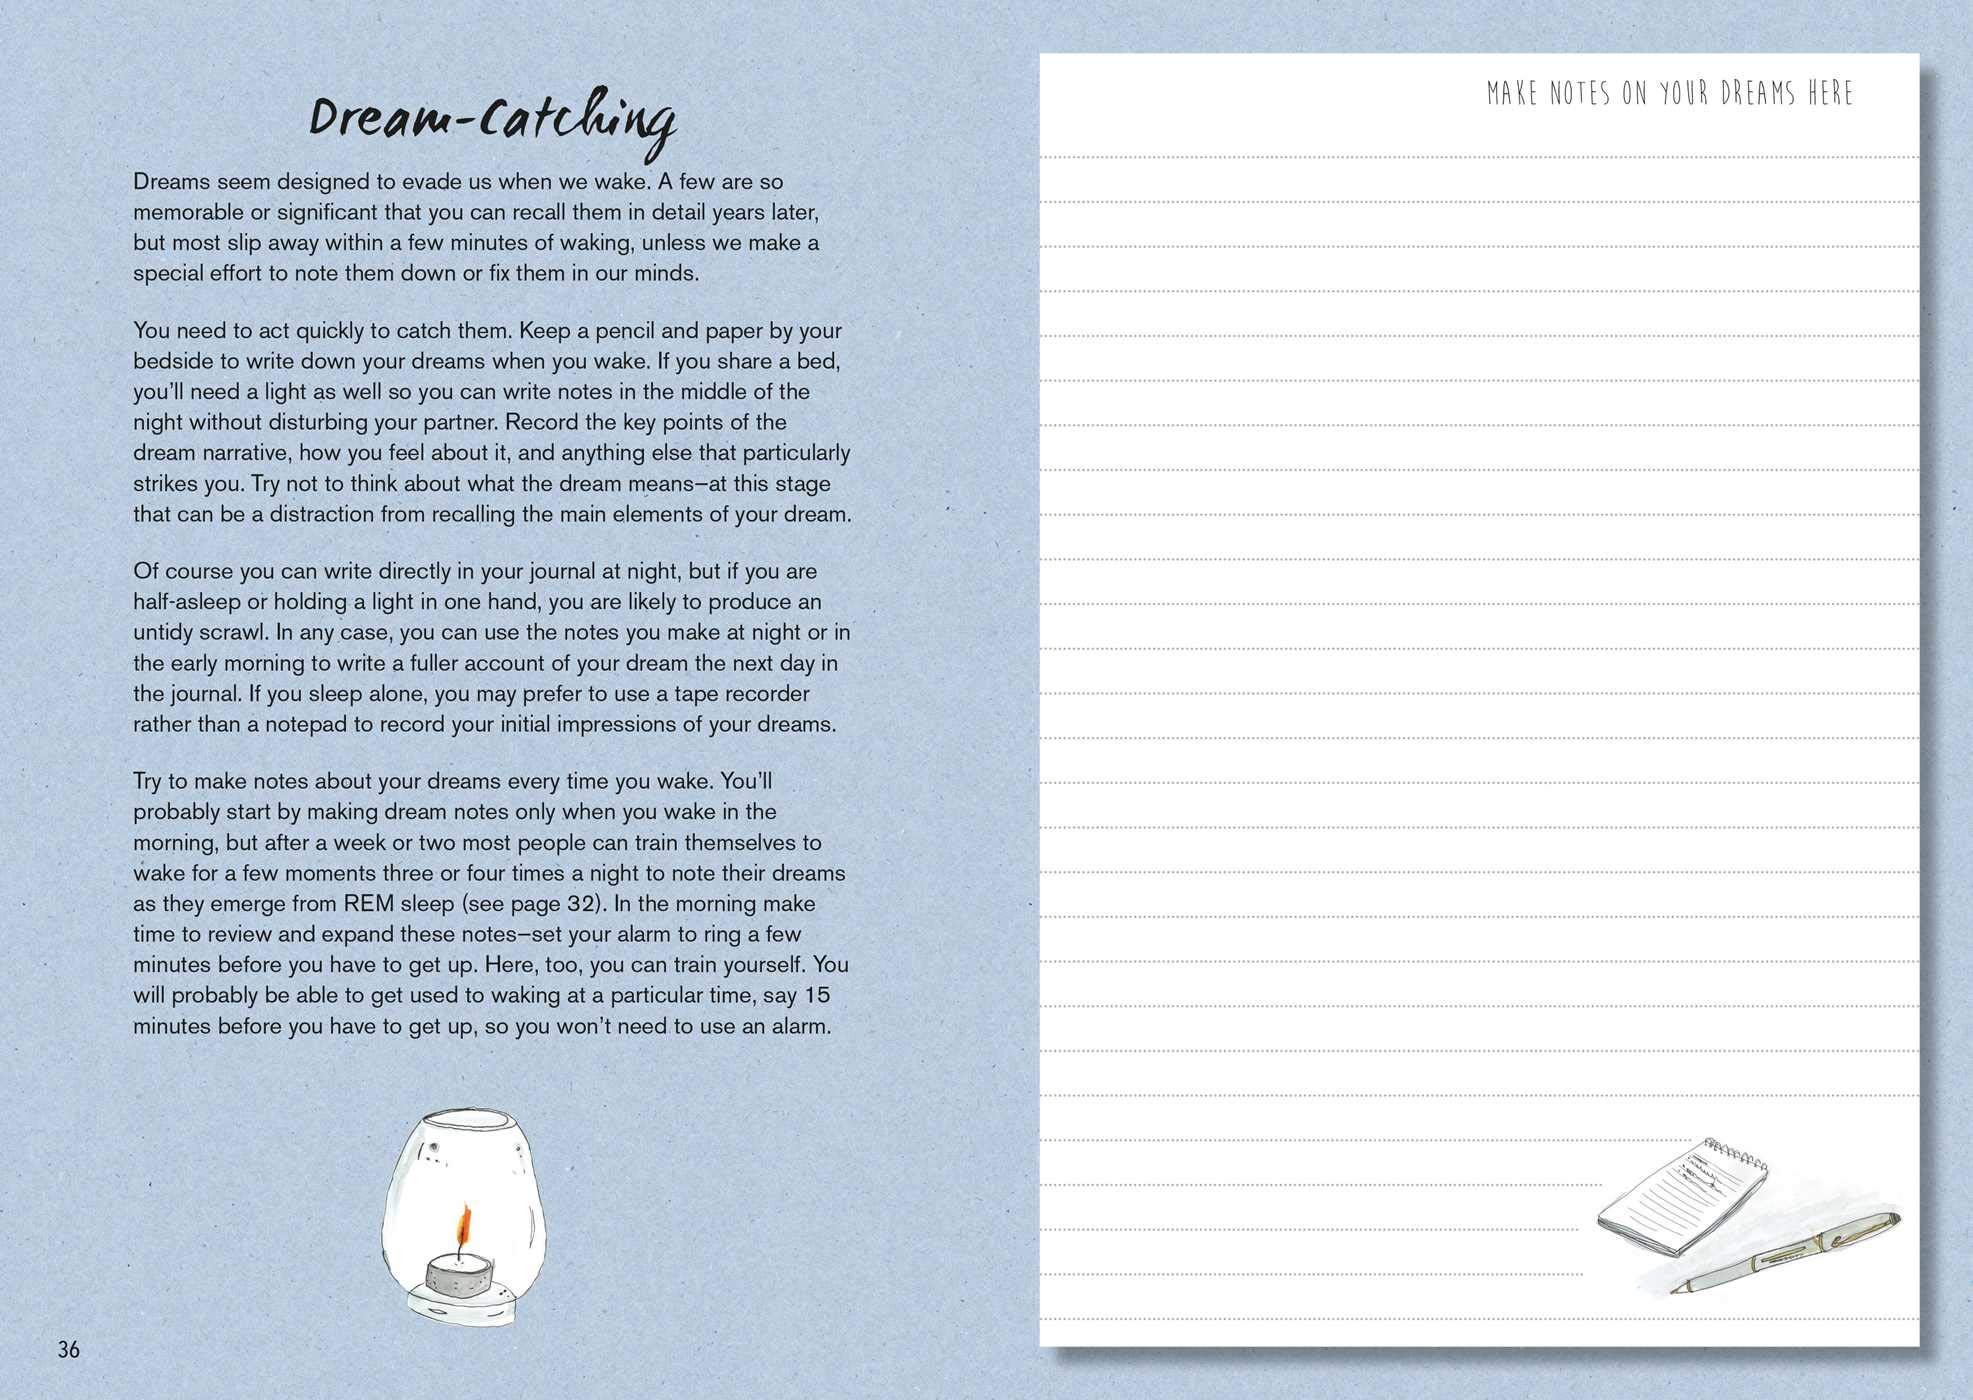 Dream-Catching
Dreams seem designed to evade us when we wake. A few are so
memorable or significant that you can recall them in detail years later,
but most slip away within a few minutes of waking, unless we make a
special effort to note them down or fix them in our minds.
You need to act quickly to catch them. Keep a pencil and paper by your
bedside to write down your dreams when you wake. If you share a bed,
you’ll need a light as well so you can write notes in the middle of the
night without disturbing your partner. Record the key points of the
dream narrative, how you feel about it, and anything else that particularly
strikes you. Try not to think about what the dream means—at this stage
that can be a distraction from recalling the main elements of your dream.
Of course you can write directly in your journal at night, but if you are
half-asleep or holding a light in one hand, you are likely to produce an
untidy scrawl. In any case, you can use the notes you make at night or in
the early morning to write a fuller account of your dream the next day in
the journal. If you sleep alone, you may prefer to use a tape recorder
rather than a notepad to record your initial impressions of your dreams.
Try to make notes about your dreams every time you wake. You’ll
probably start by making dream notes only when you wake in the
morning, but after a week or two most people can train themselves to
wake for a few moments three or four times a night to note their dreams
as they emerge from REM sleep (see page 32). In the morning make
time to review and expand these notes—set your alarm to ring a few
minutes before you have to get up. Here, too, you can train yourself. You
will probably be able to get used to waking at a particular time, say 15
minutes before you have to get up, so you won’t need to use an alarm.
36
MAKE NOTES ON YOUR DREAMS HERE